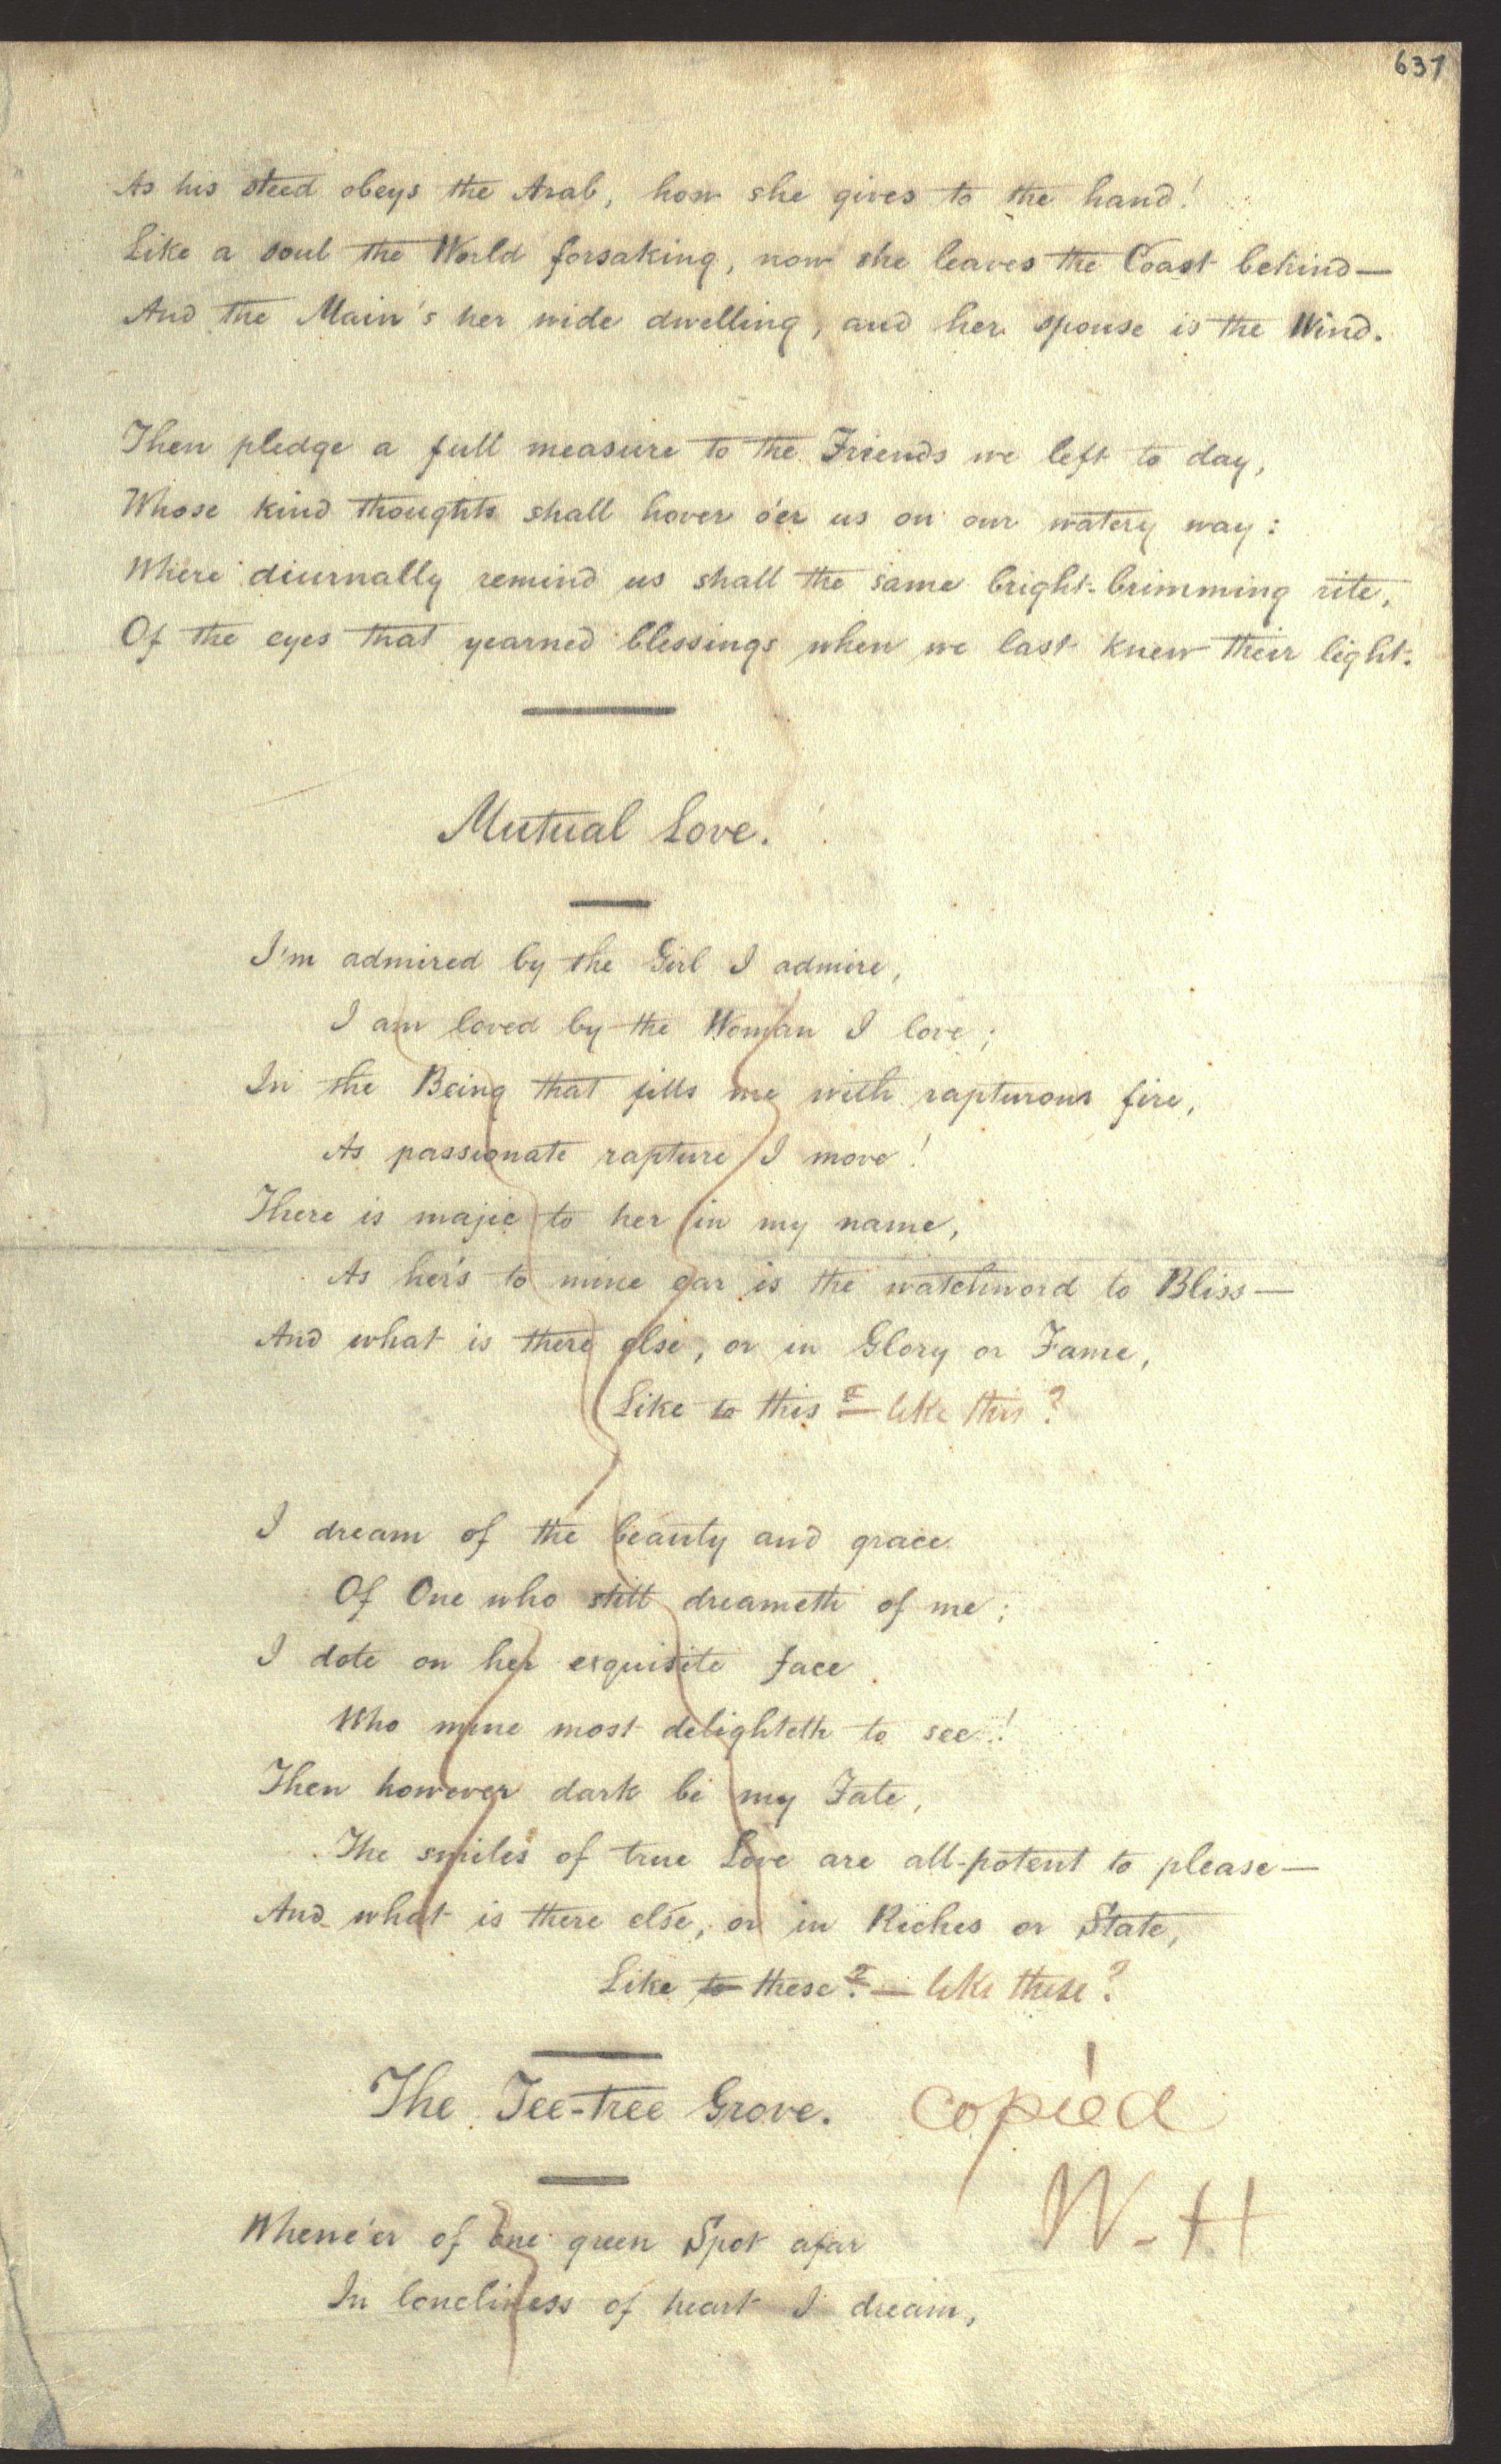 637
As his steed obeys the Arab, how she gives to the hand!
Like a soul the World forsaking, now she leaves the Coast behind—
And the Main's her wide dwelling, and her spouse is the Wind.
Then pledge a full measure to the Friends we left to day,
Whose kind thoughts shall hover o'er us on our watery way:
Where diurnally remind us shall the same bright-brimming rite,
Of the eyes that yearned blessings when we last knew their light.
Mutual Love.
I'm admired by the Girl I admire,
I am loved by the Woman I love;
In the Being that fills me with rapturous fire,
As passionate rapture I move!
There is majic to her in my name,
As her's to mine ear is the watchword to Bliss—
And what is there else, or in Glory or Fame,
Like to this?—like this?
I dream of the beauty and grace
Of One who still dreameth of me;
I dote on her exquisite face
Who mine most delighteth to see!
Then however dark be my Fate,
The smiles of true Love are all-potent to please—
And what is there else, or in Riches or State,
Like to these?—like these?
The Tee-tree Grove. copied
W-H
Whene'er of one green Spot afar
In loneliness of heart I dream,